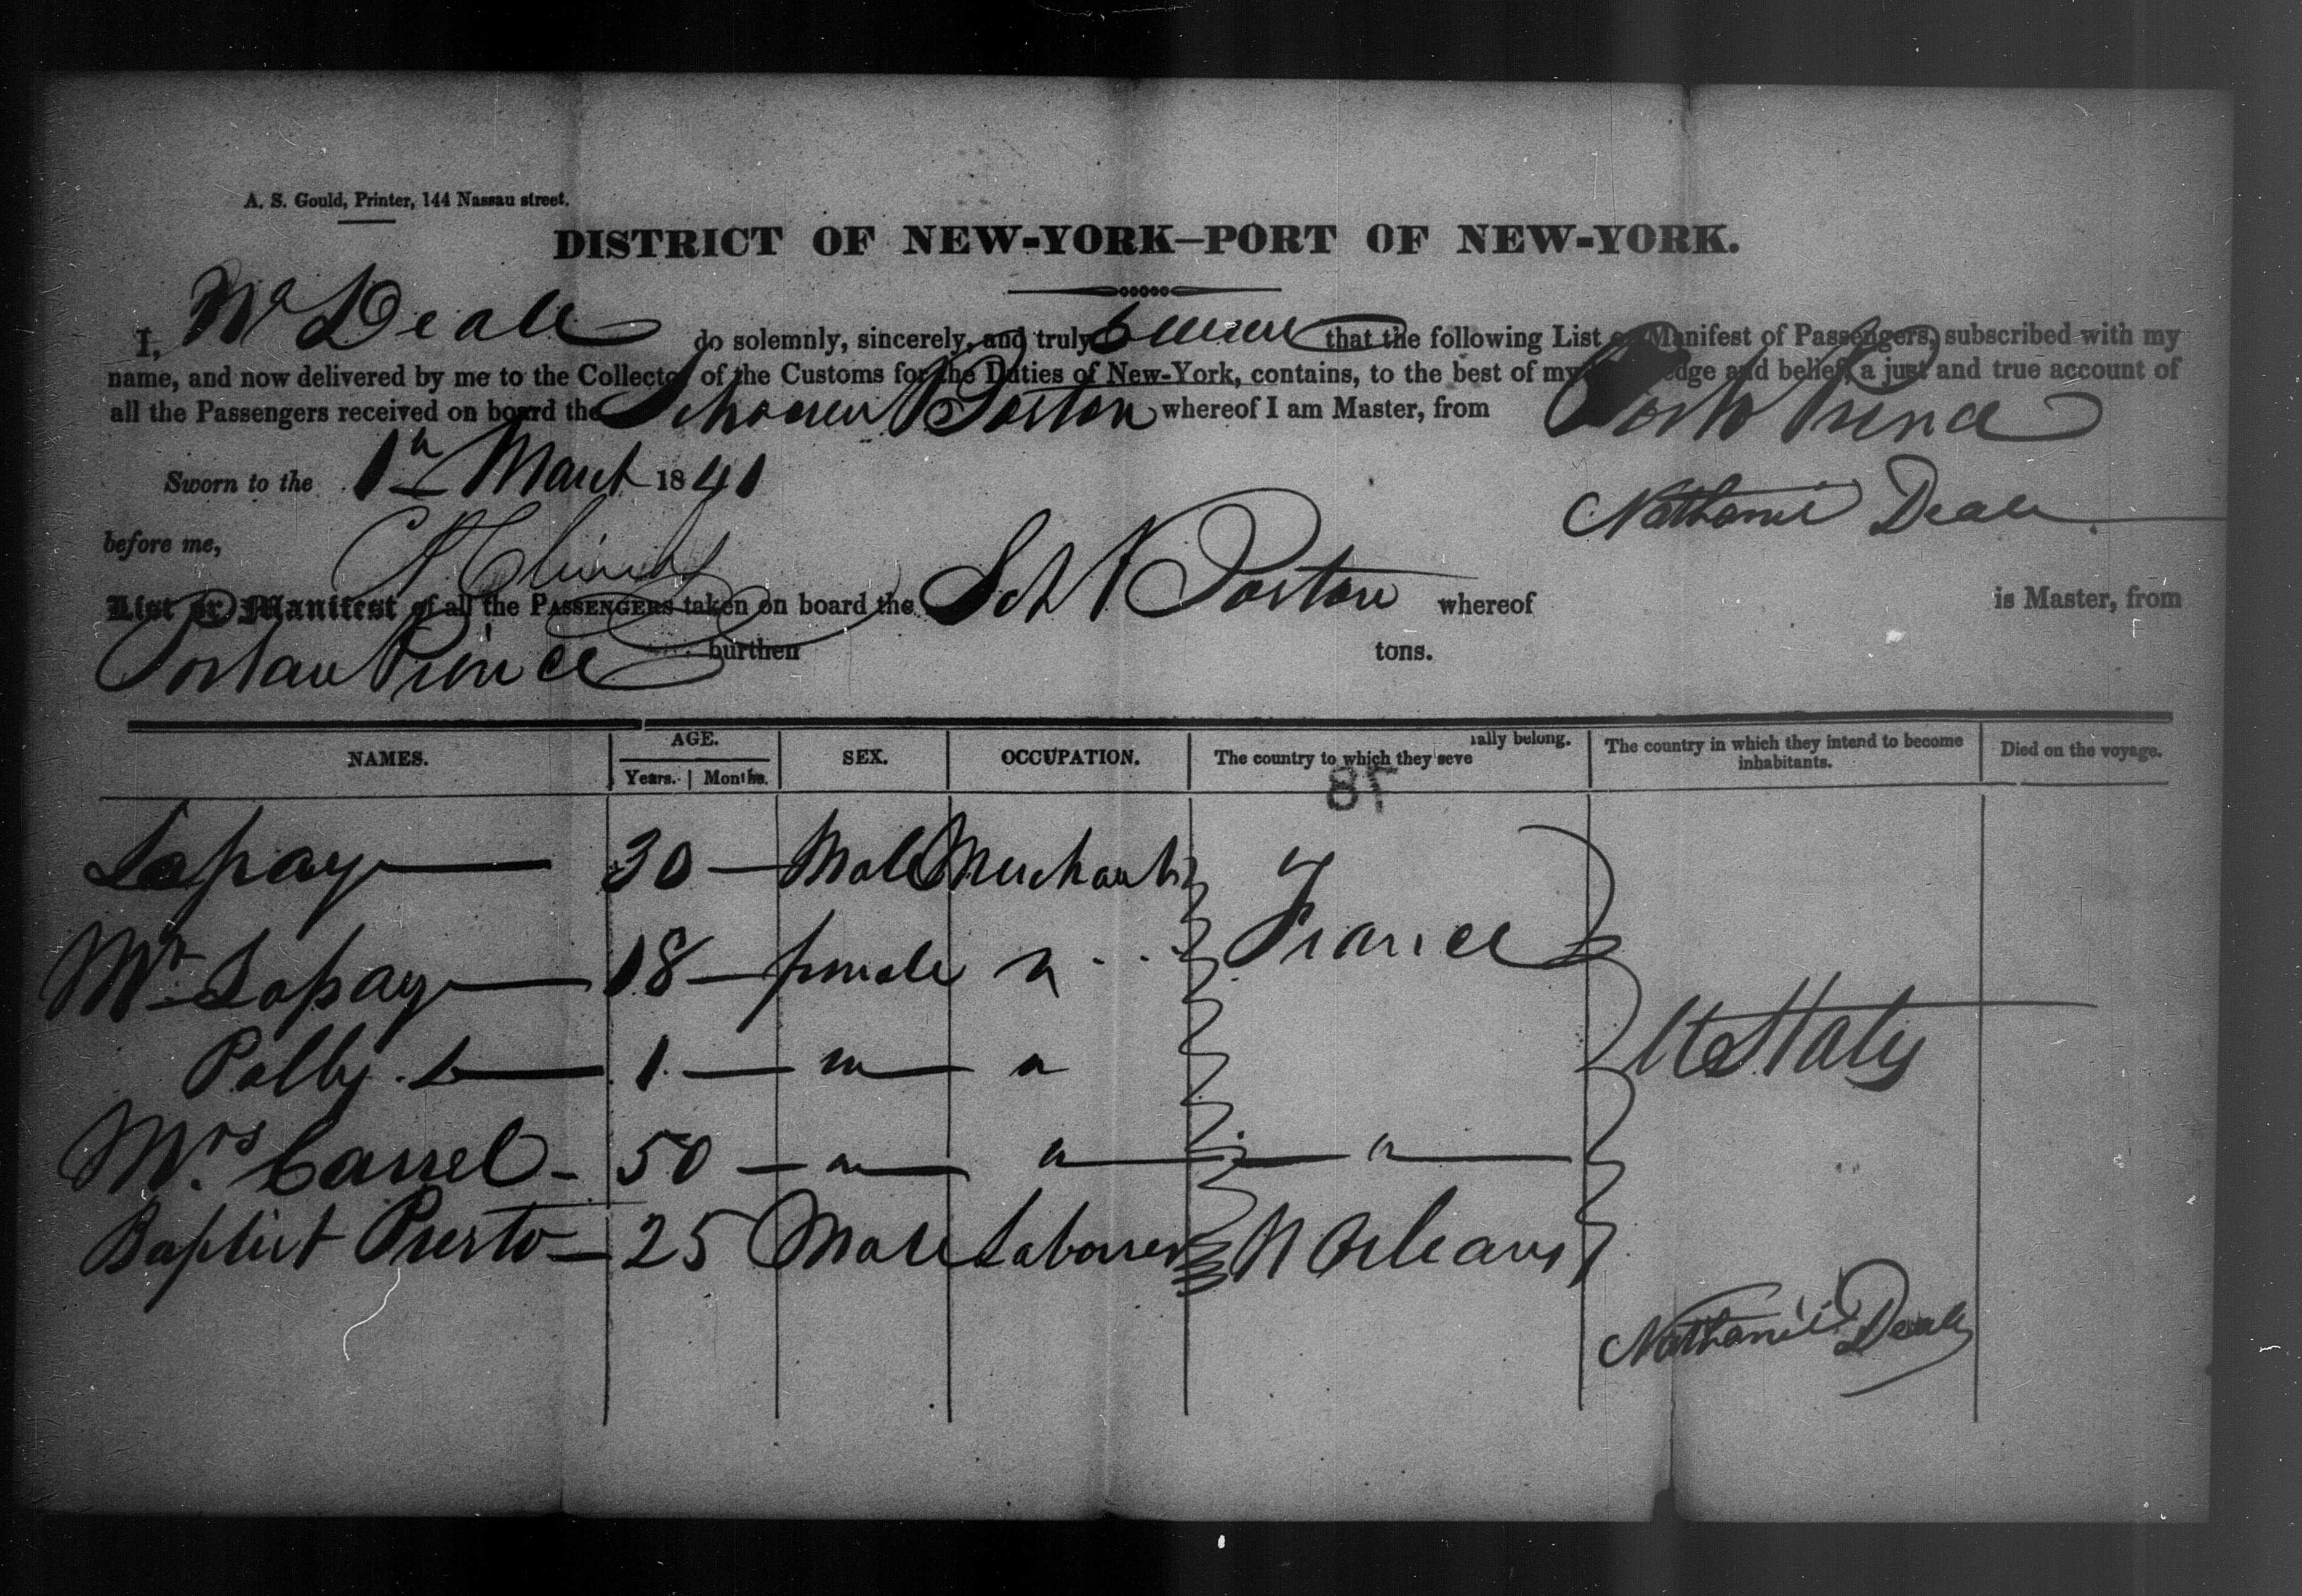 A. S. Gould, Printer, 144 Nassau street.
DISTRICT OF NEW-YORK—PORT OF NEW-YORK.
I, Deale do solemnly, sincerely, and truly that the following List or Manifest of Passengers, subscribed with my
name, and now delivered by me to the Collector of the Customs for the Duties of New-York, contains, to the best of my knowledge and belief, a just and true account of
all the Passengers received on board the whereof I am Master, from
Sworn to the 1 March 1841
Nathaniel Deale
before me,
List or Manifest of all the PASSENGERS taken on board the Sch whereof is Master, from
Port au Prince burthen tons.
NAMES. AGE. SEX. OCCUPATION. The country to which they severally belong. The country in which they intend to become inhabitants. Died on the voyage.
Years. Months.
18
Lapay 30 Male Merchant France
Mrs Lapay 18 female "
Polly L 1 " " U States
Mrs Carrel 50 " " "
Baptist 25 Male Labourer N Orleans
Nathaniel Deale